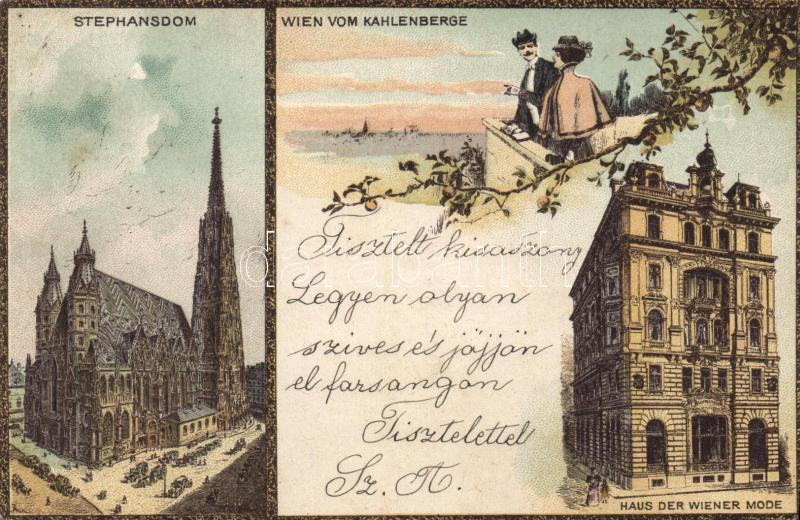 STEPHANSDOM
WIEN VOM KAHLENBERGE
Tisztelt kisaszony
Legyen olyan
szives és jöjjön
el farsangon
Tisztelettel
Sz. A.
HAUS DER WIENER MODE
darabanth